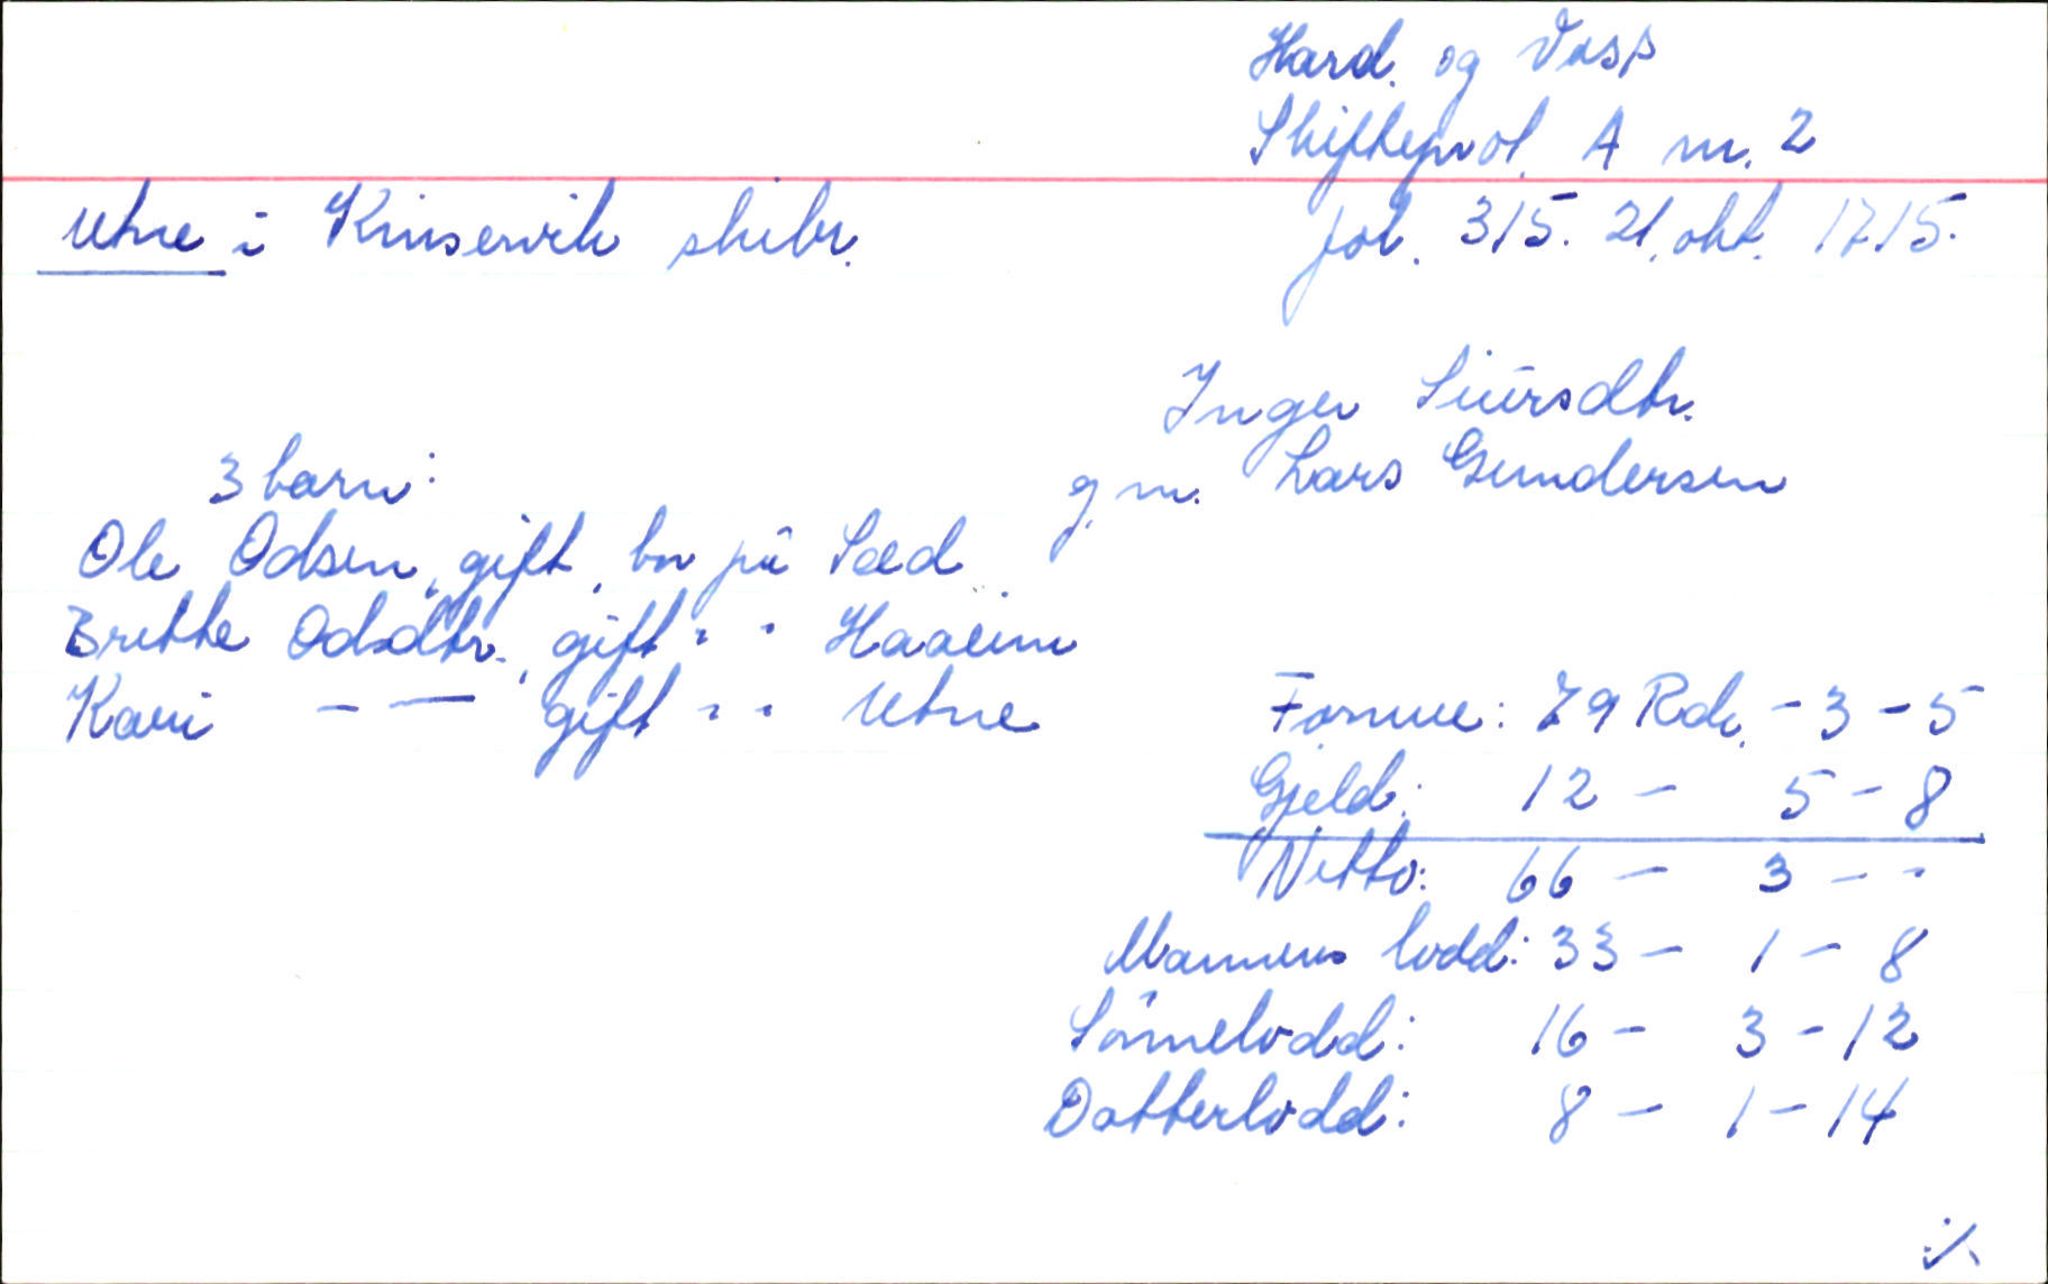 Hard. og Voss
Skifteprot. A nr. 2
Utne i Kinservik skibr.
fol. 315. 21. okt. 1715.
Inger Siursdtr.
g. m. Lars Gundersen
3 barn:
Ole Odsen, gift, bor på Sæd
Britte Odsdtr., gift " " Haaeim
Kari - — gift " " Utne
Formue: 79 Rdr. - 3 - 5
Gjeld: 12 - 5 - 8
Netto: 66 - 3 - -
Mannens lodd: 33 - 1 - 8
Sönnelodd: 16 - 3 - 12
Datterlodd: 8 - 1 - 14
./.